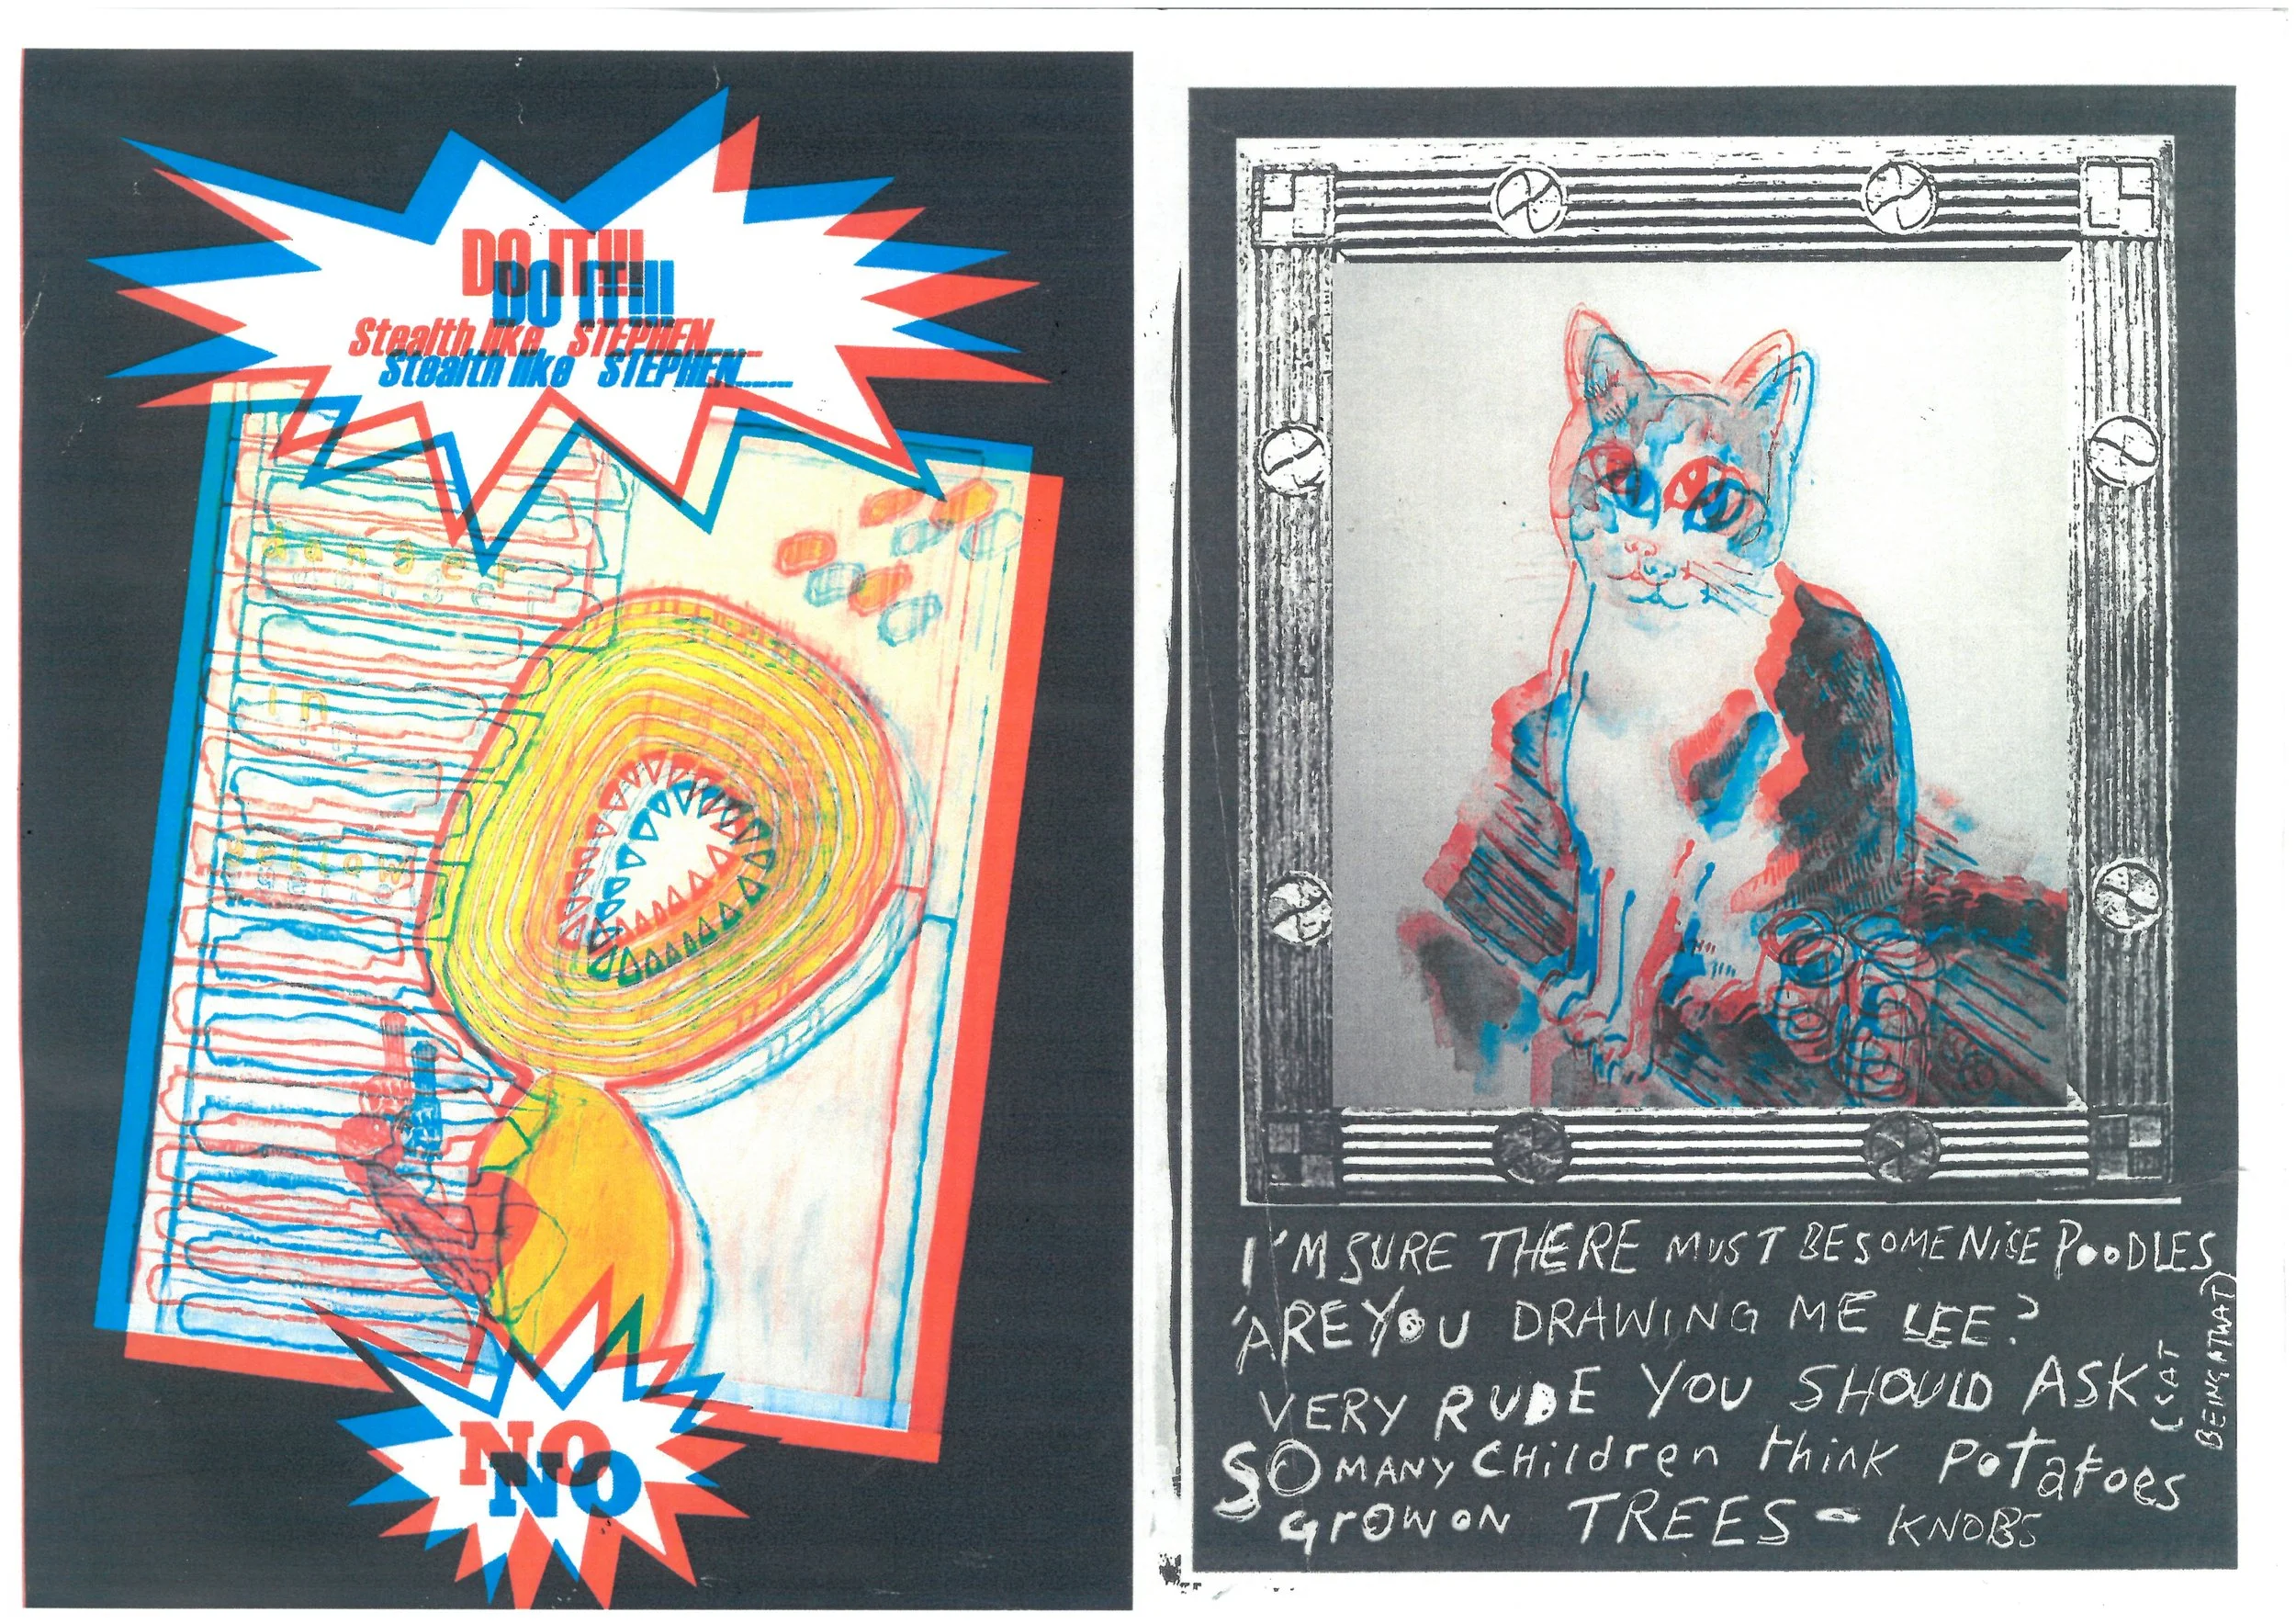 DO IT!!!
DO IT!!!
Stealth like STEPHEN......
Stealth like STEPHEN......
danger
danger
in
in
yellow
yellow
NO
NO
I'M SURE THERE MUST BE SOME NiCE POODLES
'ARE YOU DRAWING ME LEE?
VERY RUDE YOU SHOULD ASK
(CAT
BEING A TWAT)
SO MANY CHildren think PoTatoes
Grow ON TREES - KNOBS